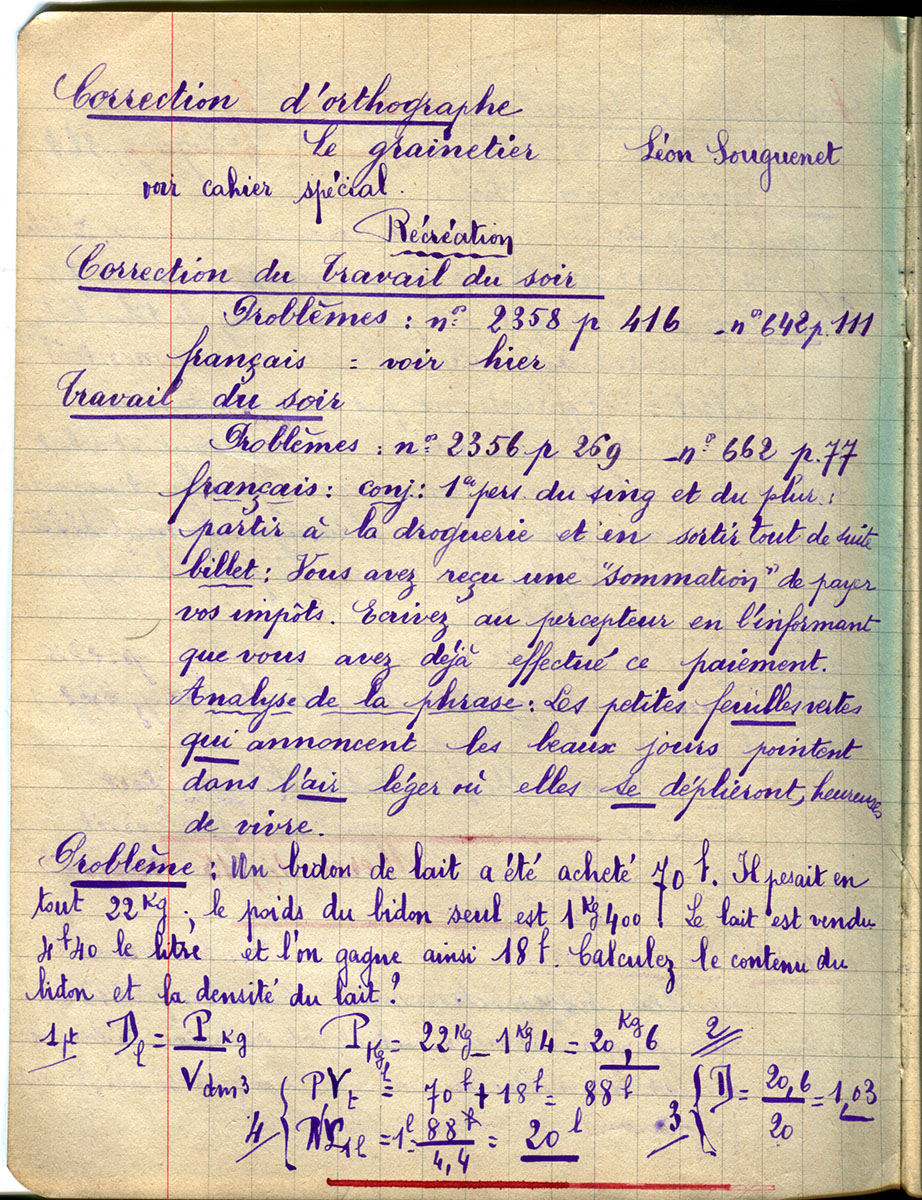 Correction d'orthographe
Le grainetier Léon Souguenet
voir cahier spécial.
Récréation
Correction du travail du soir
Problèmes : nº 2358 p 416 - nº 642 p. 111
français = voir hier
Travail du soir
Problèmes : nº 2356 p 269 - nº 662 p. 77
français : conj : 1re pers. du sing et du plur :
partir à la droguerie et en sortir tout de suite
billet : Vous avez reçu une "sommation" de payer
vos impôts. Ecrivez au percepteur en l'informant
que vous avez déjà effectué ce paiement.
Analyse de la phrase : Les petites feuilles vertes
qui annoncent les beaux jours pointent
dans l'air léger où elles se déplieront, heureuses
de vivre.
Problème : Un bidon de lait a été acheté 70f. Il pesait en
tout 22Kg ; le poids du bidon seul est 1Kg400. Le lait est vendu
4f40 le litre et l'on gagne ainsi 18f. Calculez le contenu du
bidon et la densité du lait ?
Dl = P Kg / V dm3 PKg = 22Kg - 1Kg4 = 20Kg,6 2
4 { PVt = 70f + 18f = 88f 3 { D = 20,6 / 20 = 1,03
88f / 4,4 = 20l